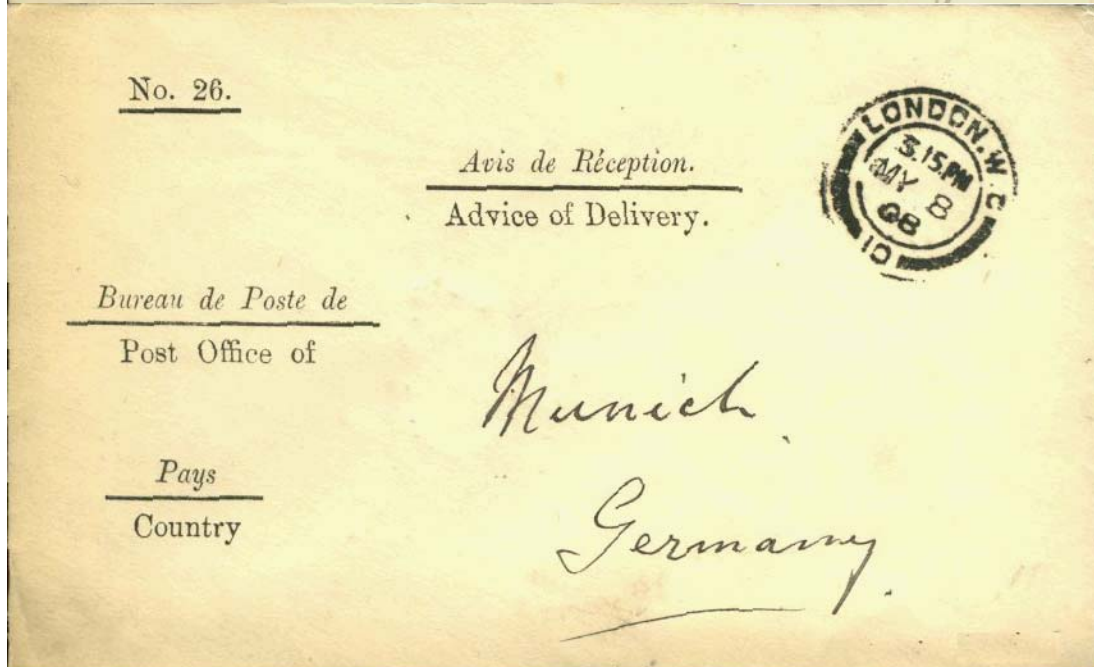 No. 26.
Avis de Réception.
Advice of Delivery.
LONDON. W. C
3.15.PM
MY 8
08
101
Bureau de Poste de
Post Office of
Munich
Pays
Country
Germany